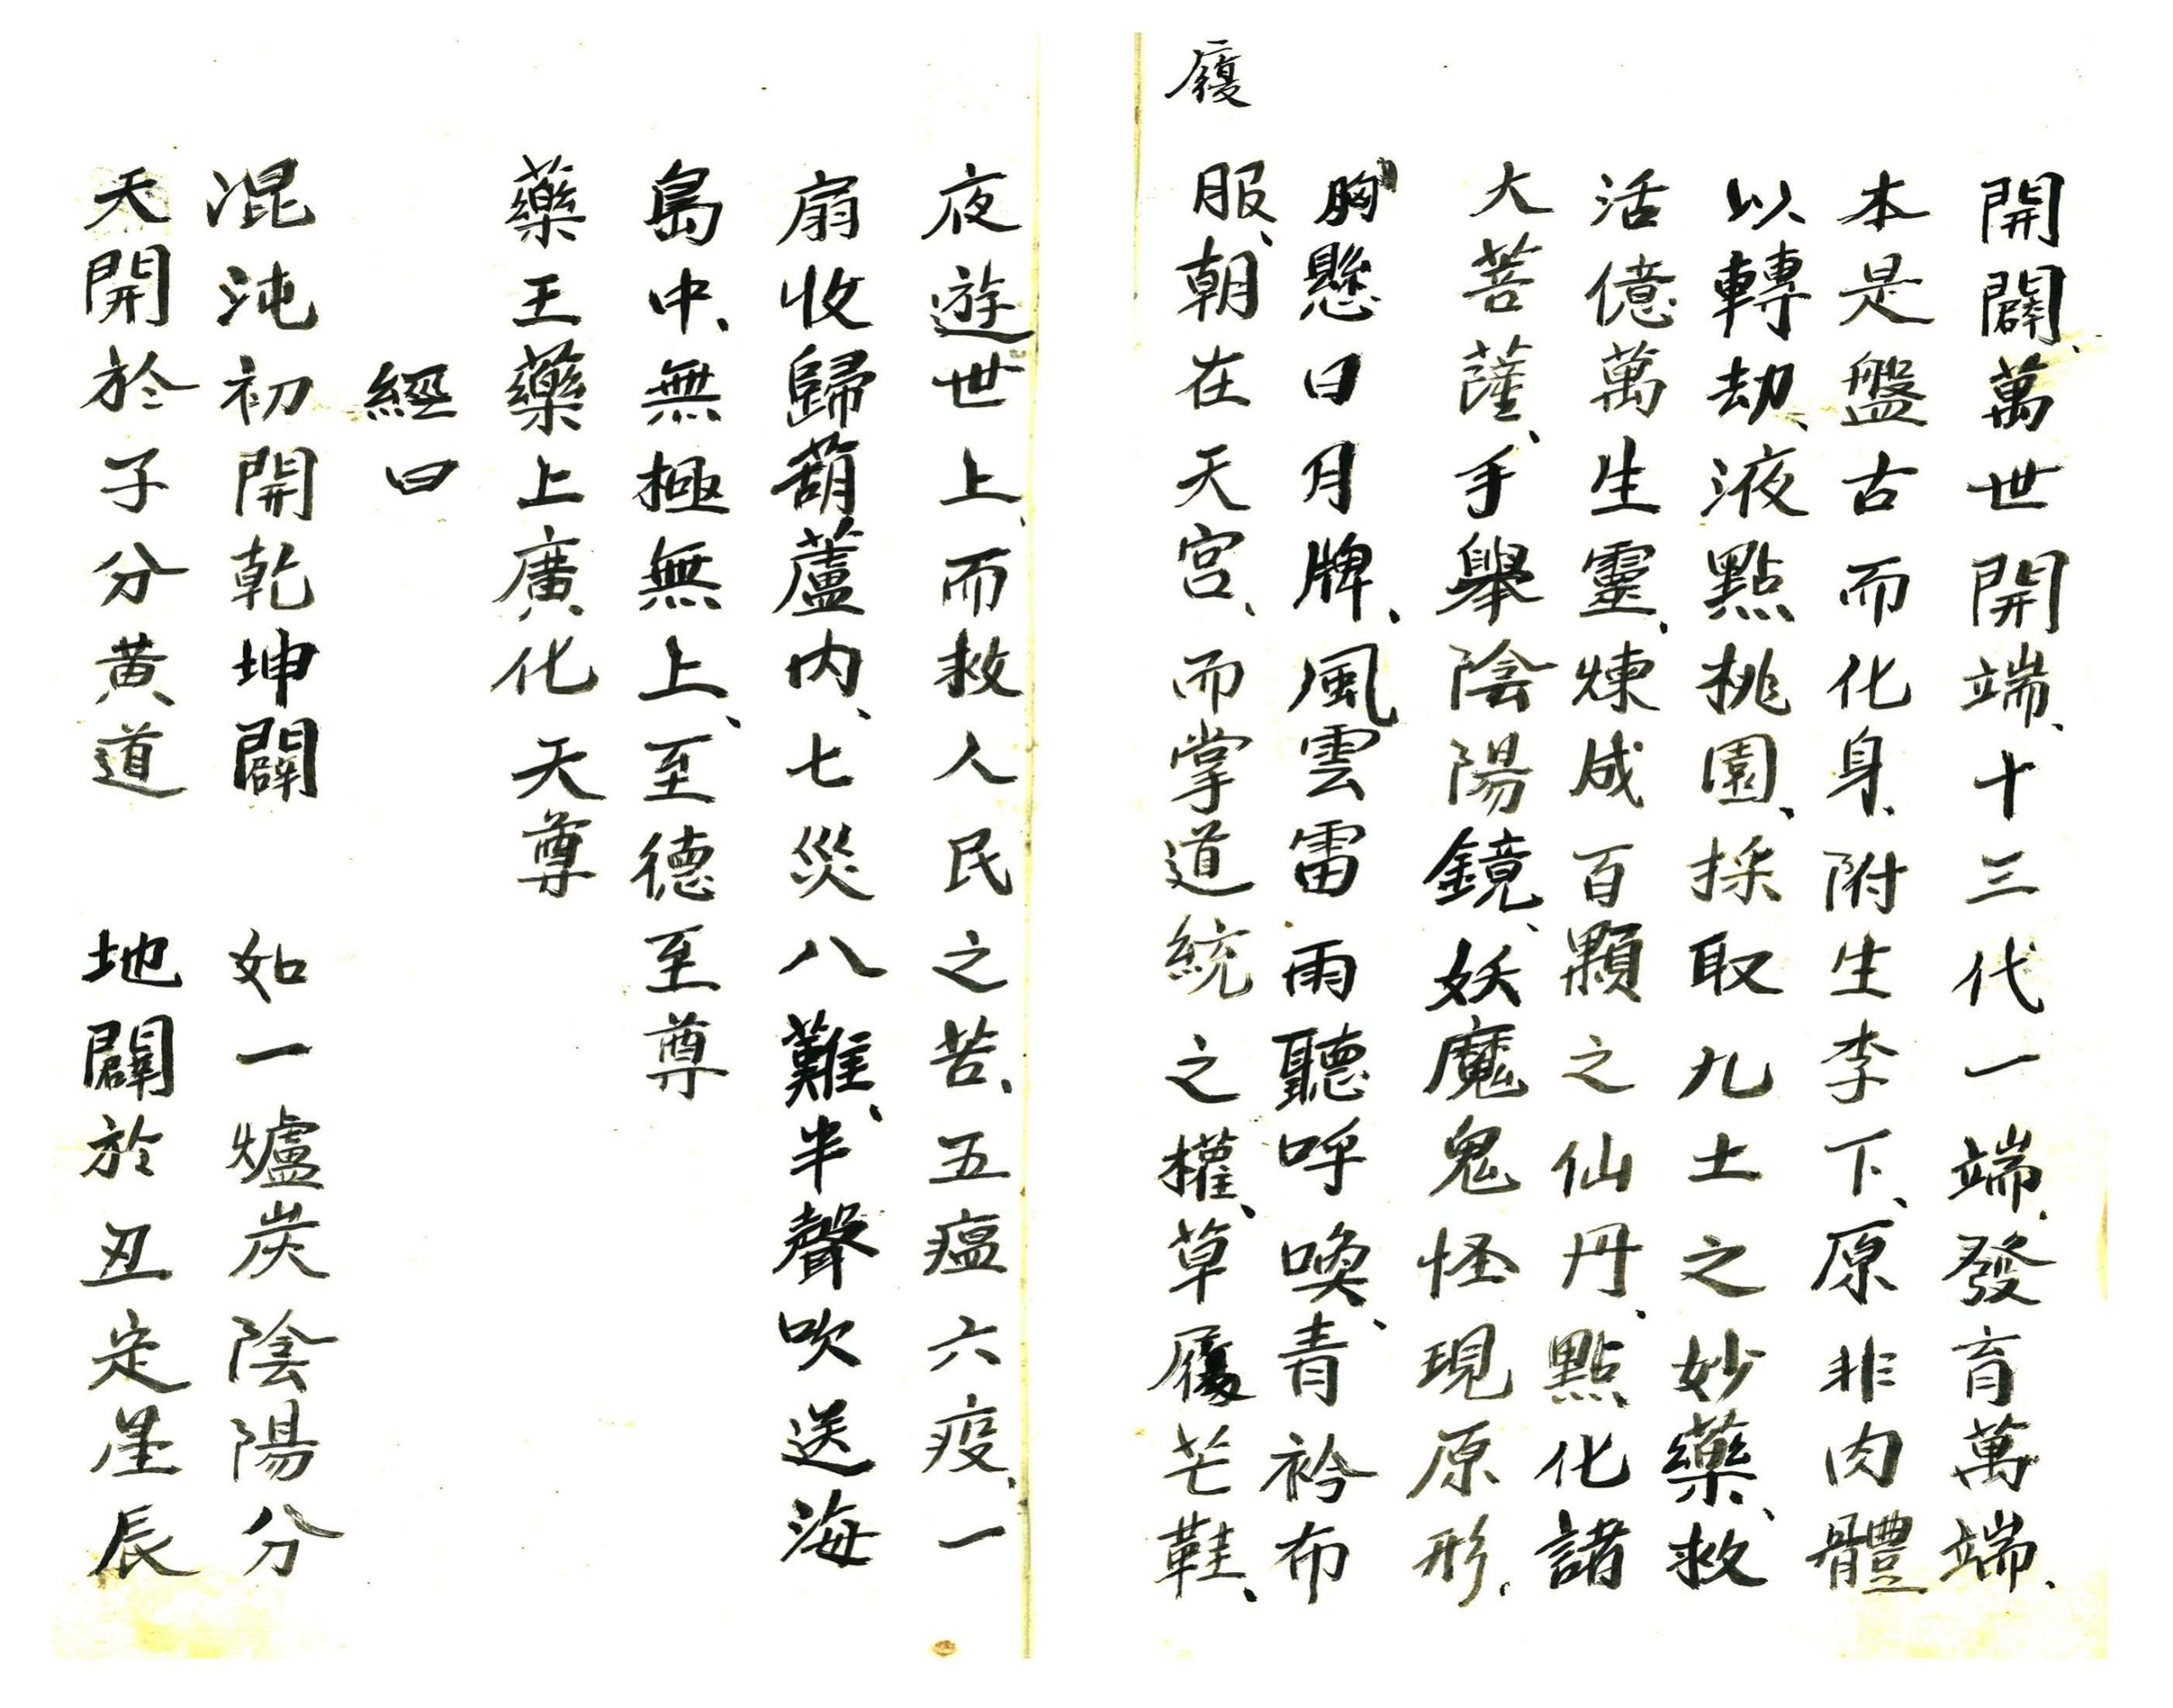 開闢、萬世開端、十三代一端、發育萬端、
本是盤古而化身、附生李下、原非肉體
以轉劫、液點桃園、採取九土之妙藥、救
活億萬生靈、煉成百顆之仙丹、點化諸
大菩薩、手舉陰陽鏡、妖魔鬼怪現原形、
胸懸日月牌、風雲雷雨聽呼喚、青衿布
服、朝在天宮、而掌道統之權、草履芒鞋、
履
夜遊世上、而救人民之苦、五瘟六疫、一
扇收歸葫蘆內、七災八難、半聲吹送海
島中、無極無上、至德至尊
藥王藥上廣化天尊
經曰
混沌初開乾坤闢 如一爐炭陰陽分
天開於子分黃道 地闢於丑定星辰